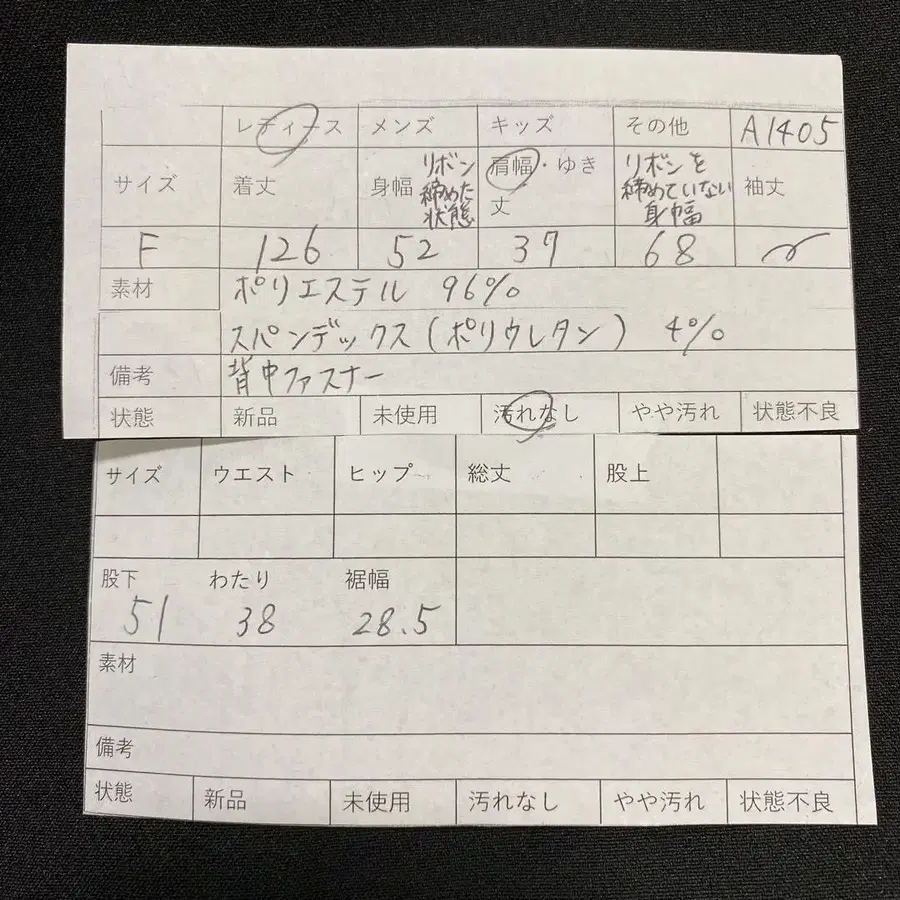 レディース メンズ キッズ その他 A1405
サイズ 着丈 身幅 リボン締めた状態 肩幅・ゆき丈 リボンを締めていない身幅 袖丈
F 126 52 37 68
素材 ポリエステル 96%
スパンデックス(ポリウレタン) 4%
備考 背中ファスナー
状態 新品 未使用 汚れなし やや汚れ 状態不良
サイズ ウエスト ヒップ 総丈 股上
股下 わたり 裾幅
51 38 28.5
素材
備考
状態 新品 未使用 汚れなし やや汚れ 状態不良